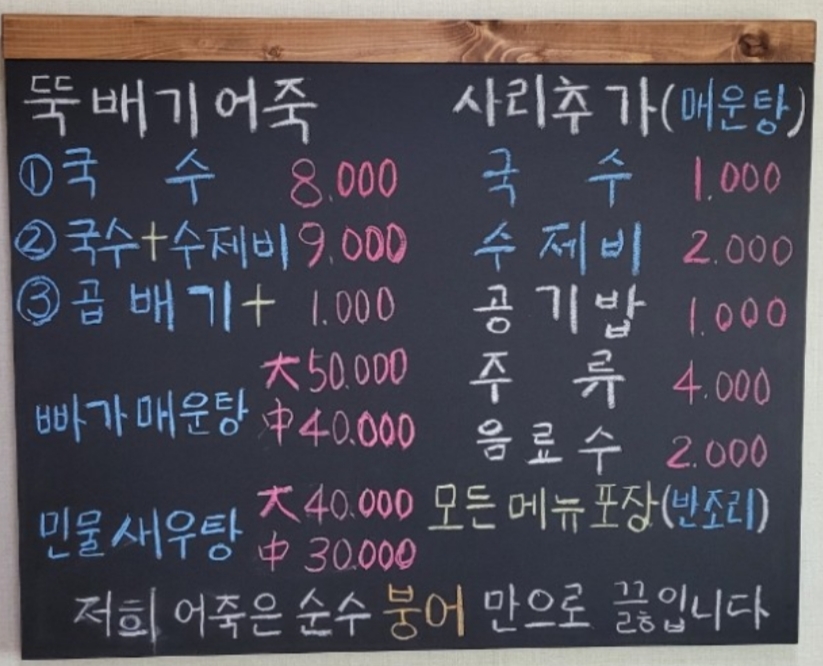 뚝배기어죽
① 국 수 8.000
② 국수+수제비 9.000
③ 곱배기+ 1.000
빠가매운탕 大 50.000
中 40.000
민물새우탕 大 40.000
中 30.000
사리추가(매운탕)
국 수 1.000
수제비 2.000
공기밥 1.000
주 류 4.000
음료수 2.000
모든메뉴포장(반조리)
저희 어죽은 순수 붕어 만으로 끓입니다